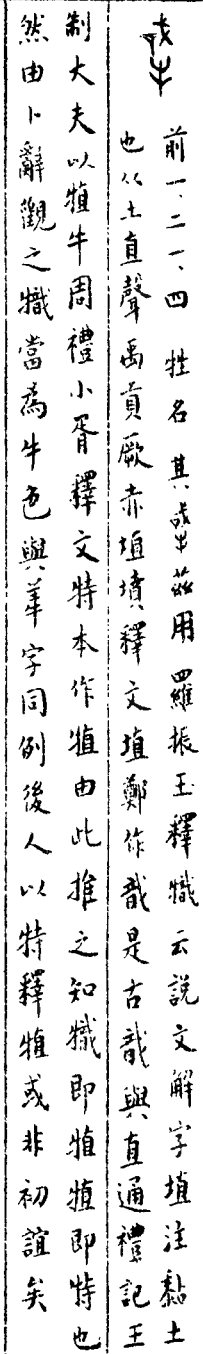 前一、二一、四 牲名 其茲用 羅振玉釋云說文解字埴注黏土
也从土直聲禹貢厥赤埴墳釋文埴鄭作戠是古戠與直通禮記王
制大夫以犆牛周禮小胥釋文特本作犆由此推之知即犆犆即特也
然由卜辭觀之當為牛色與字同例後人以特釋犆或非初誼矣